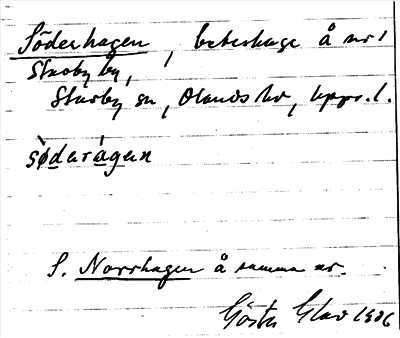 Söderhagen, beteshage å nr 1
Starby by,
Starby sn, Olands hd, Upps. l.
sǿdarágen
S. Norrhagen å samma nr.
Gösta 1906